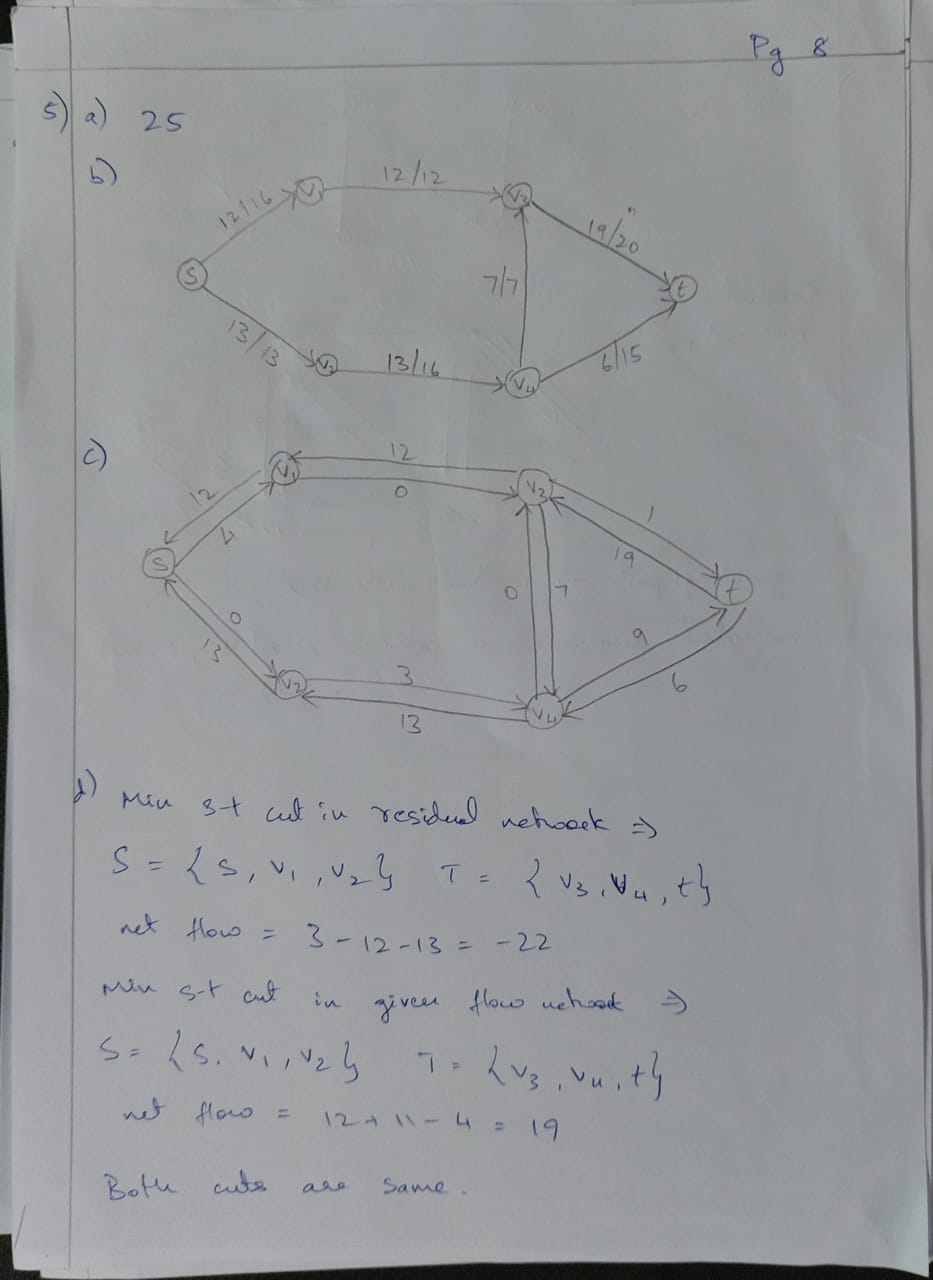 Pg 8
5) a) 25
b)
12/16 V1 12/12 V3 19/20
S 7/7 t
13/13 V2 13/16 V4 6/15
c)
12 4 V1 12 0 V3 1 19
S 0 7 t
0 13 V2 3 13 V4 9 6
d) Min s-t cut in residual network ⇒
S = { S, V1, V2 } T = { V3, V4, t }
net flow = 3 - 12 - 13 = - 22
Min s-t cut in given flow network ⇒
S = { S, V1, V2 } T = { V3, V4, t }
net flow = 12 + 11 - 4 = 19
Both cuts are same.